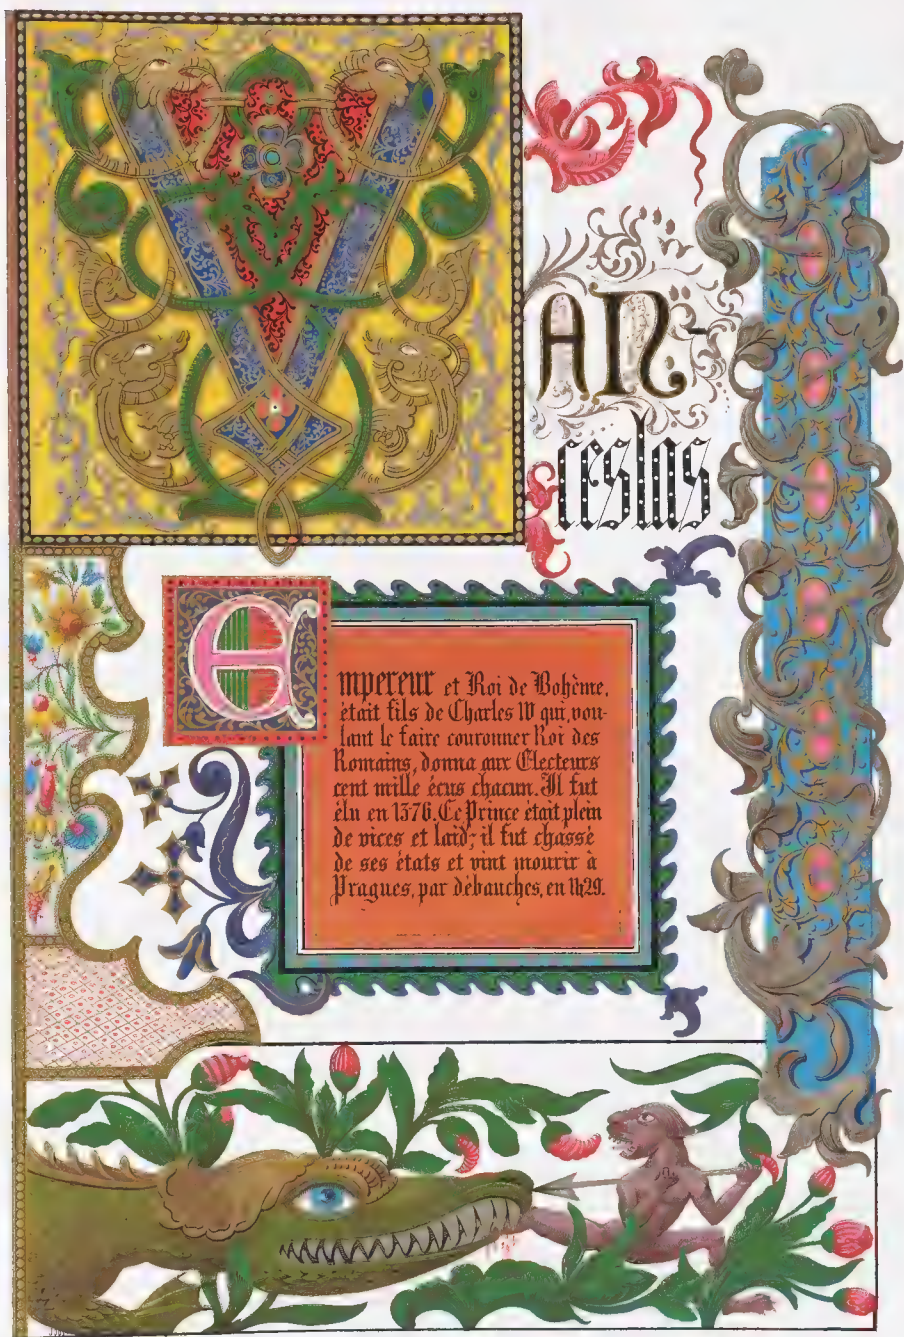 VAN-
ceslas
Empereur et Roi de Bohème,
était fils de Charles IV qui, vou-
lant le faire couronner Roi des
Romains, donna aux Electeurs
cent mille écus chacun. Il fut
élu en 1376. Ce Prince était plein
de vices et laid; il fut chassé
de ses états et vint mourir à
Pragues, par débauches, en 1429.